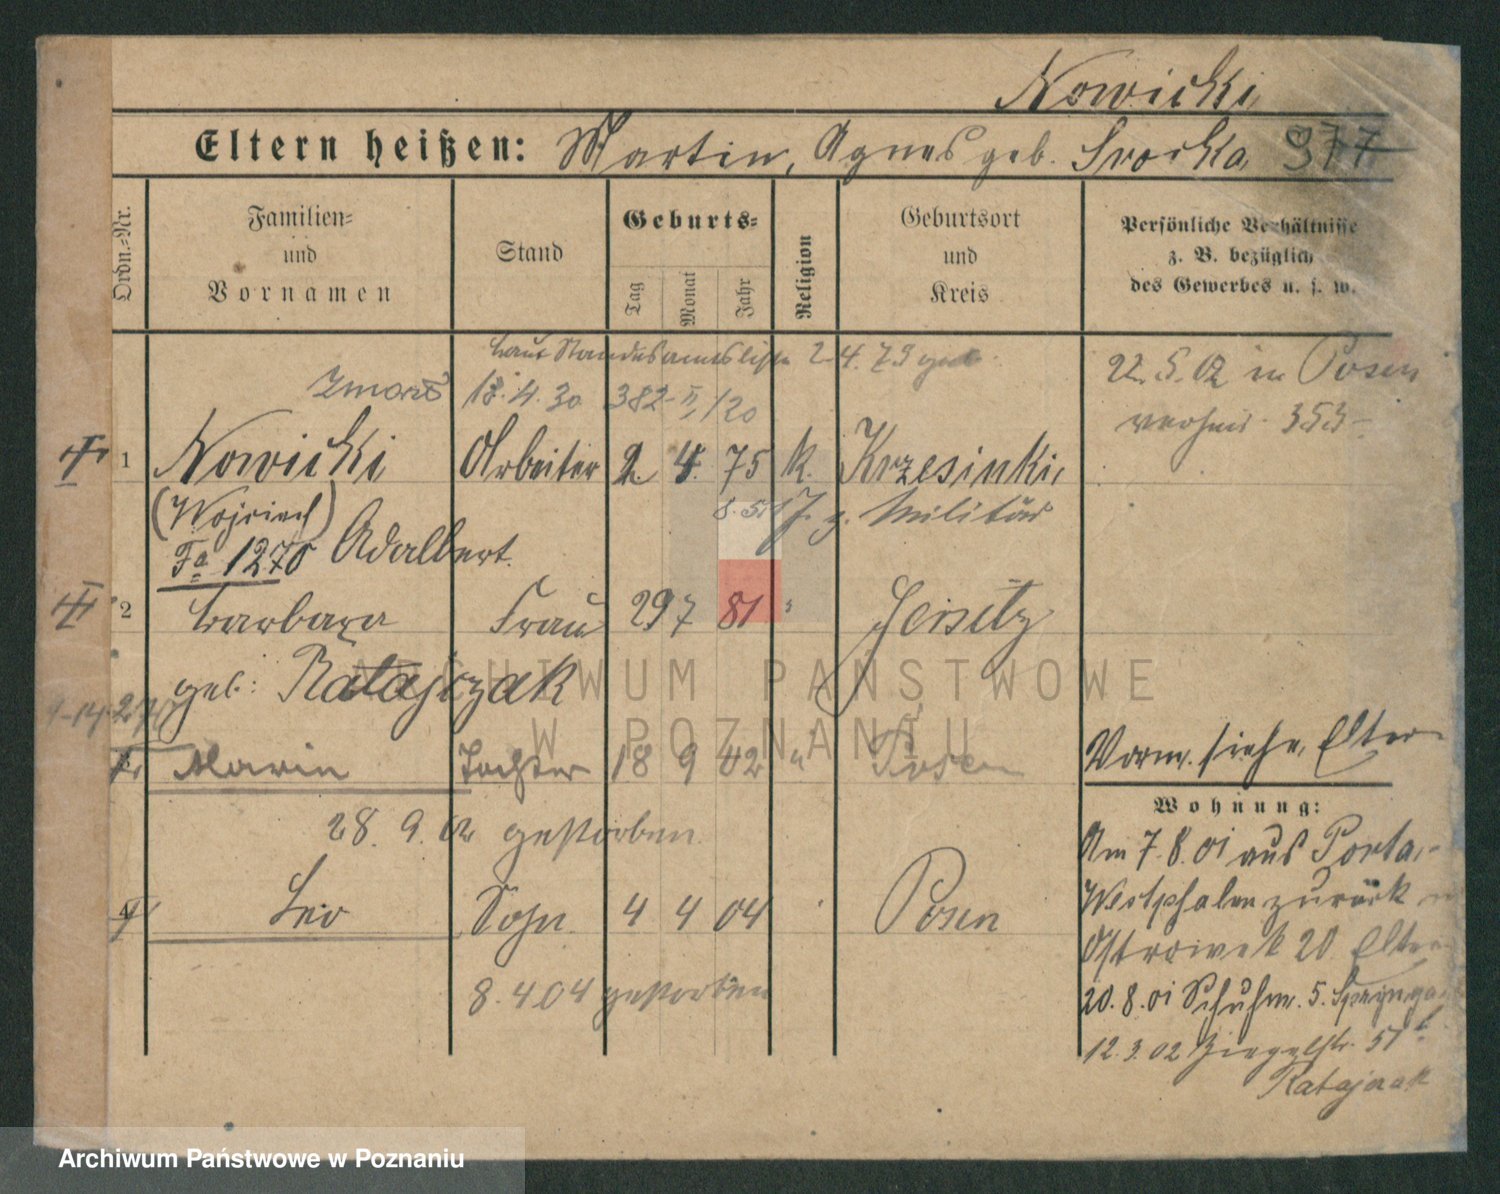 Nowicki
Eltern heißen: Martin, Agnes geb. Srocka 377
Ordn.-Nr.
Familien- und Vornamen
Stand
Geburts-
Tag Monat Jahr
Religion
Geburtsort und Kreis
Persönliche Verhältnisse z. B. bezüglich des Gewerbes u. s. w.
laut Standesamtsliste 2.4.79 geb.
22.5.02 in Posen
18.4.30 382 II/20
353
1 Nowicki Arbeiter 2. 4. 75 k. Krzesinki
(Wojciech) z. Militär
Fa 1270 Adalbert.
2 Barbara Frau 29 7 81 " Jersitz
geb: Ratajczak
ARCHIWUM PAŃSTWOWE
W POZNANIU
Maria Tochter 18 9 02 " Posen
Vorm. siehe Eltern
28. 9. 02 gestorben
Wohnung:
Am 7.8.01 aus Porta
Westphalen zurück
4 Leo Sohn 4 4 04 Posen
Ostrowek 20 Eltern
8.4.04 gestorben
20.8.01 Schuhm. 5.
12.3.02 Ziegelstr. 5
Ratajczak
Archiwum Państwowe w Poznaniu